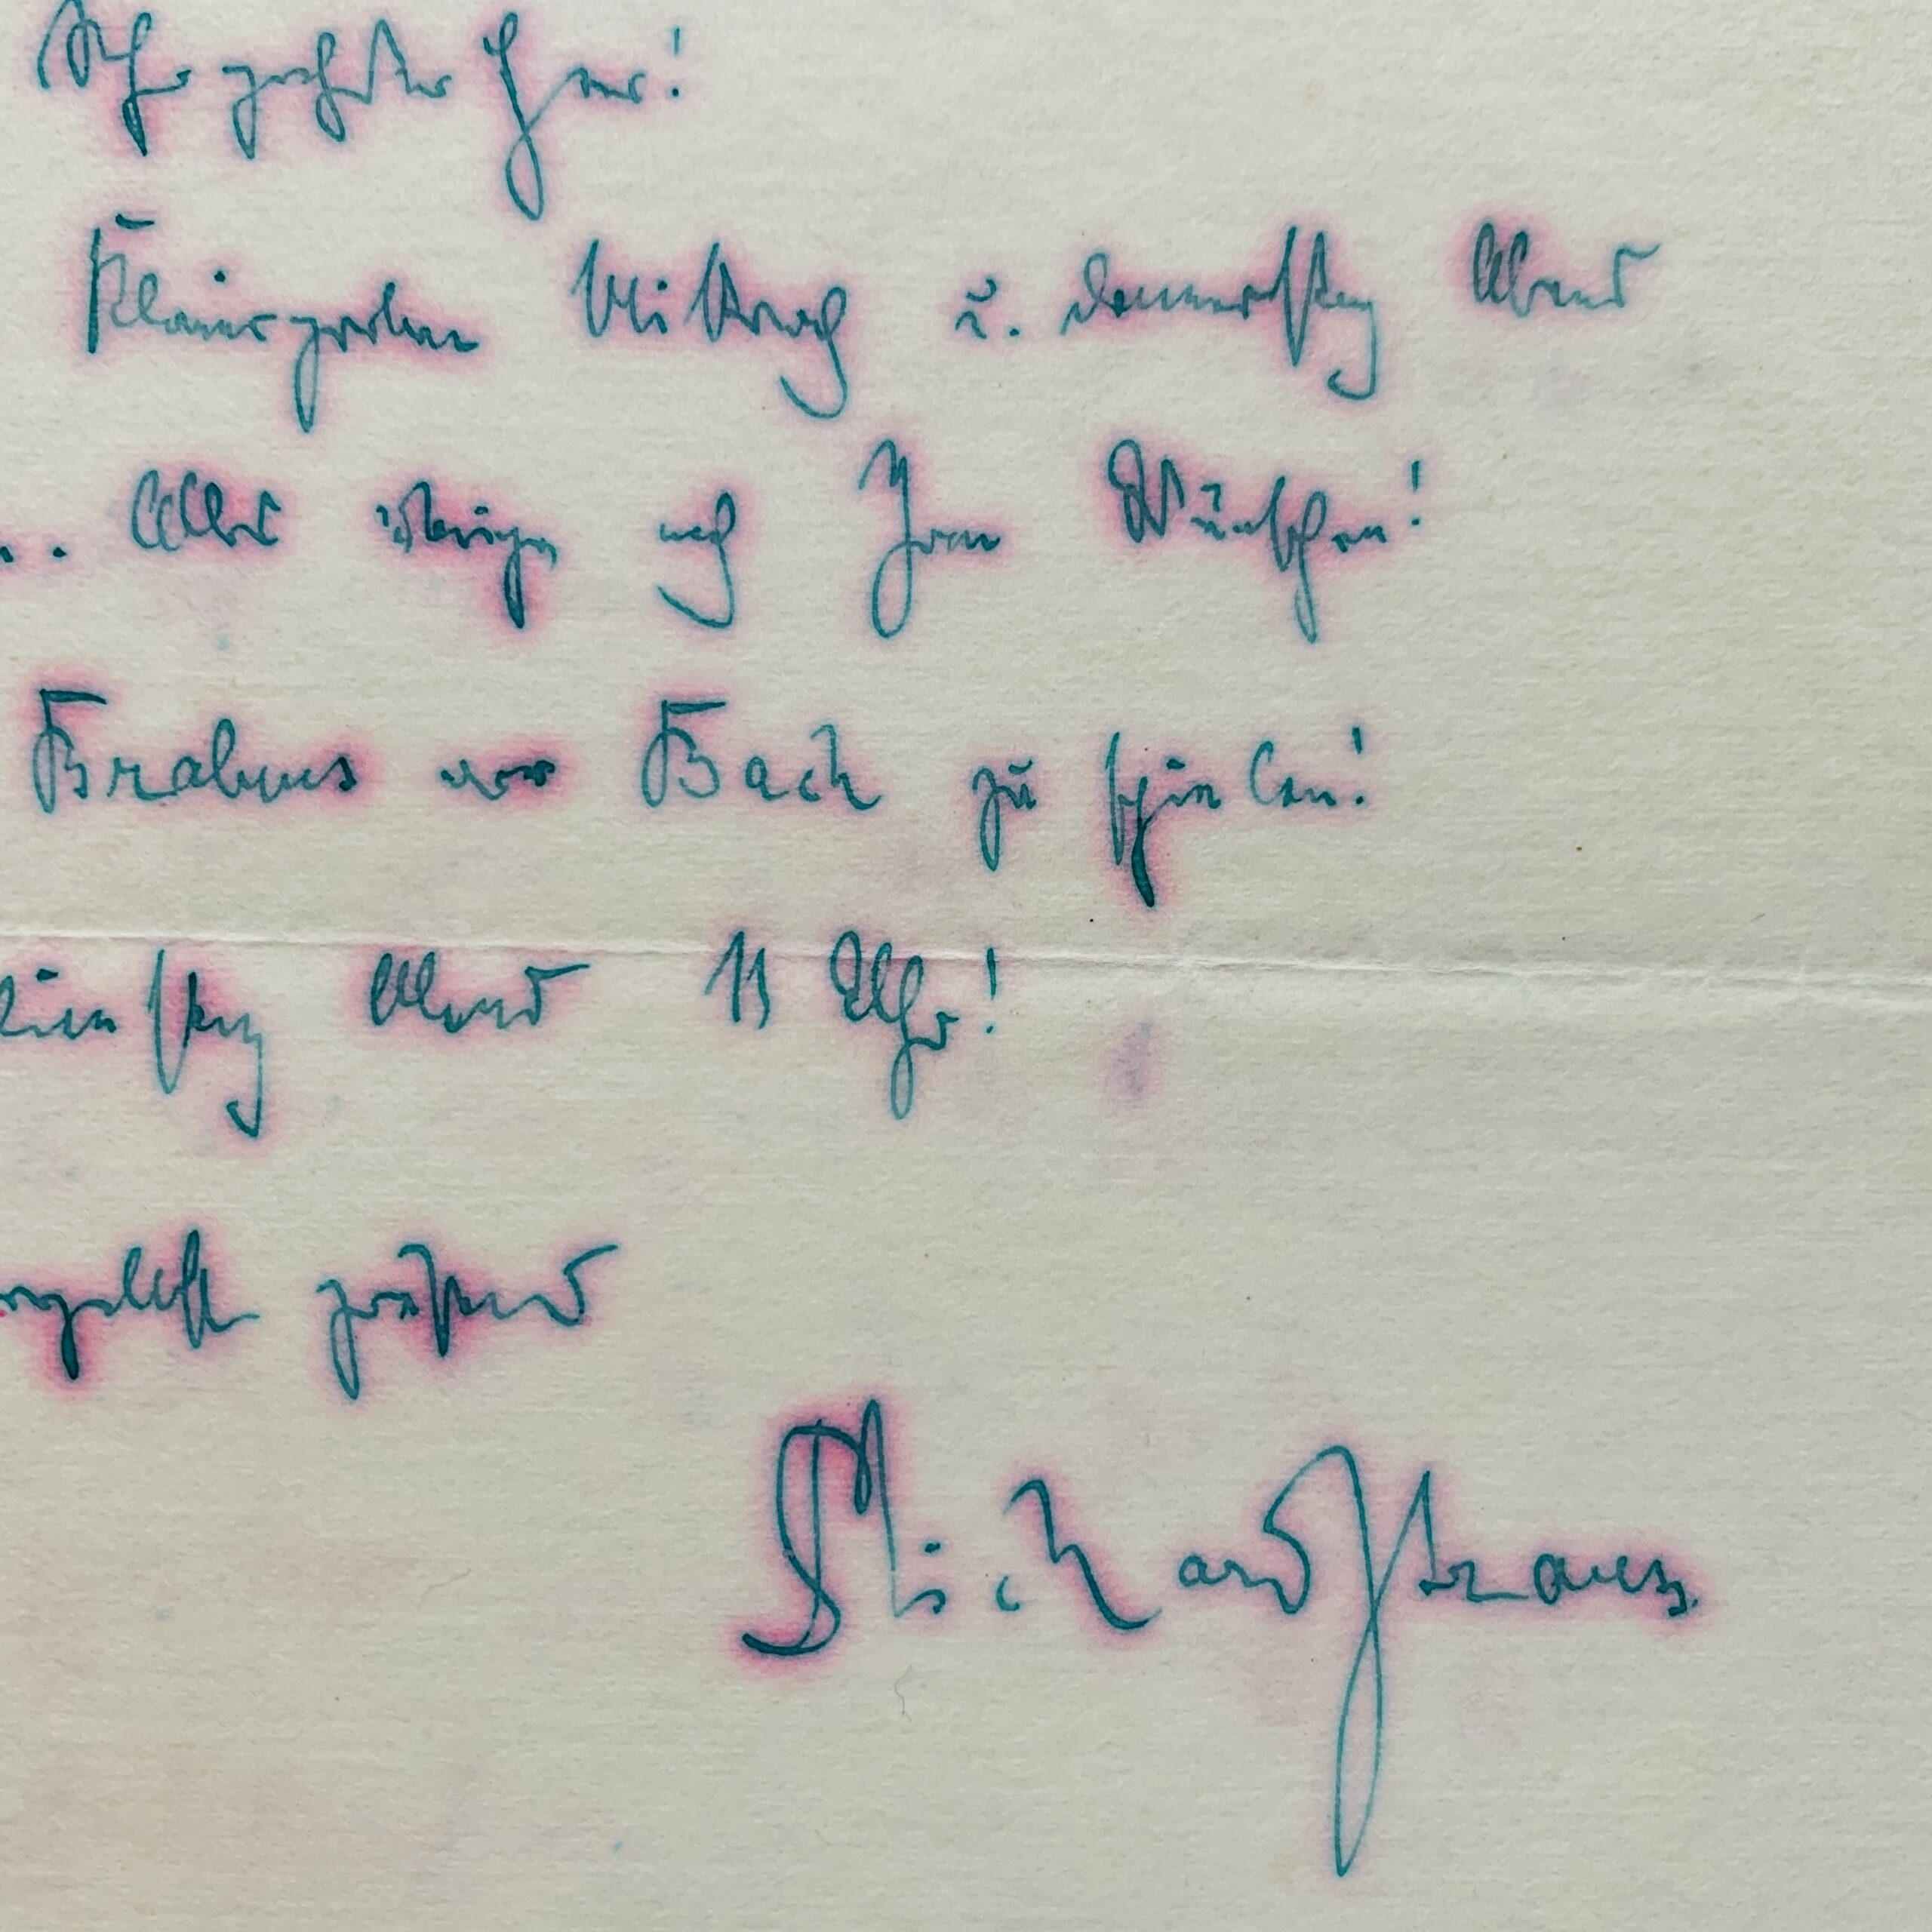 Sehr geehrter Herr!
Klavierproben Mittwoch u. Donnerstag Abend
.. Alles übrige nach Ihren Wünschen!
Brahms vor Bach zu spielen!
Dienstag Abend 11 Uhr!
grüßend
Richard Strauss